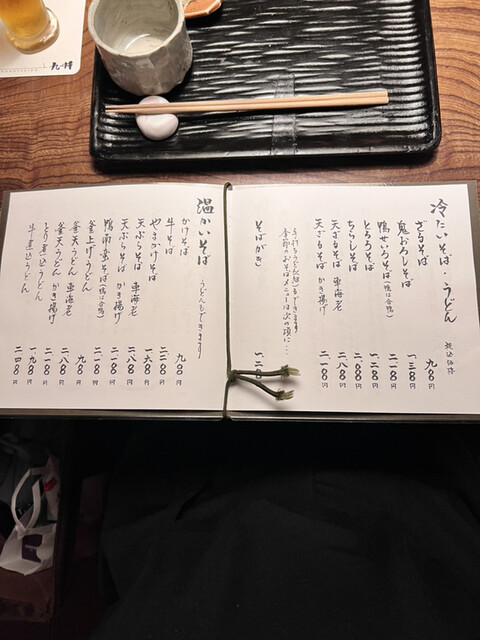 冷たいそば・うどん
税込価格
ざるそば 九〇〇円
鬼おろしそば 一、三〇〇円
鴨せいろそば(鴨は合鴨) 二、一〇〇円
とろろそば 一、二〇〇円
ちらしそば 二、〇〇〇円
天ざるそば 車海老 二、八〇〇円
天ざるそば かき揚げ 二、一〇〇円
手打うどん(太・細)もできます
季節のおそばメニューは次の項に…
そばがき
温かいそば うどんもできます
かけそば 九〇〇円
牛そば 二、二〇〇円
やまかけそば 一、六〇〇円
天ぷらそば 車海老 二、八〇〇円
天ぷらそば かき揚げ 二、一〇〇円
鴨南蛮そば(鴨は合鴨) 二、一〇〇円
釜上げうどん 九〇〇円
釜天うどん 車海老 二、八〇〇円
釜天うどん かき揚げ 二、一〇〇円
とり煮込うどん 一、九〇〇円
牛煮込うどん 二、四〇〇円